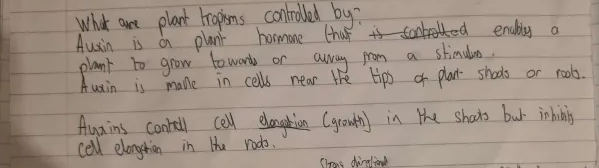 What are plant tropisms controlled by?
Auxin is a plant hormone that is controlled enables a
plant to grow towards or away from a stimulus.
Auxin is made in cells near the tips of plant shoots or roots.
Auxins control cell elongation (growth) in the shoots but inhibits
cell elongation in the roots.